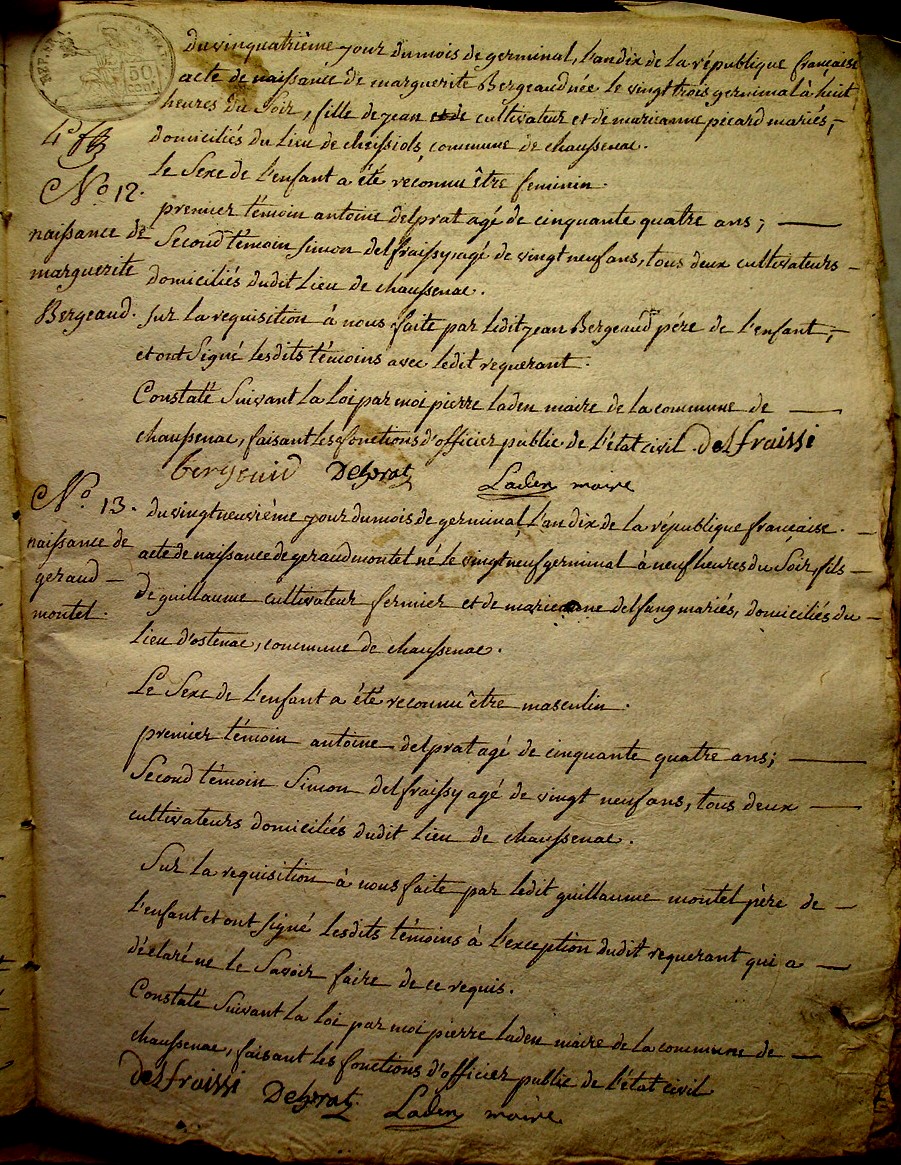 REP. FRA.
50 cent.
4e ff
du vinquatrième jour du mois de germinal, l'an dix de la république française
acte de naissance de marguerite Bergeaud née le vingt trois germinal à huit
heures du Soir, fille de jean et de cultivateur et de marieanne pecard mariés,
domiciliés du Lieu de cheissiols, commune de chaussenac.
Le Sexe de l'enfant a été reconnu être feminin.
N.o 12.
naissance de
marguerite
Bergeaud.
premier témoin antoine delprat agé de cinquante quatre ans; —
Second témoin Simon delfraissy agé de vingt neuf ans, tous deux cultivateurs —
domiciliés dudit Lieu de chaussenac.
Sur la requisition à nous faite par ledit jean Bergeaud père de l'enfant;
et ont Signé lesdits témoins avec ledit requerant.
Constaté Suivant la Loi par moi pierre Laden maire de la commune de —
chaussenac, faisant les fonctions d'officier public de l'état civil. delfraissi
bergeaud Delprat Laden maire
N.o 13.
naissance de
geraud —
montel.
du vingt neuvième jour du mois de germinal, l'an dix de la république française. —
acte de naissance de geraud montel né le vingt neuf germinal à neuf heures du Soir, fils —
de guillaume cultivateur fermier et de marieanne delfang mariés, domiciliés du —
Lieu d'ostenac, commune de chaussenac.
Le Sexe de l'enfant a été reconnu être masculin.
premier témoin antoine delprat agé de cinquante quatre ans; —
Second témoin Simon delfraissy agé de vingt neuf ans, tous deux —
cultivateurs domiciliés dudit Lieu de chaussenac.
Sur la requisition à nous faite par ledit guillaume montel père de —
l'enfant et ont Signé lesdits témoins à l'exception dudit requerant qui a —
déclaré ne le Savoir faire de ce requis.
Constaté Suivant la loi par moi pierre laden maire de la commune de —
chaussenac, faisant les fonctions d'officier public de l'état civil
delfraissi Delprat Laden maire